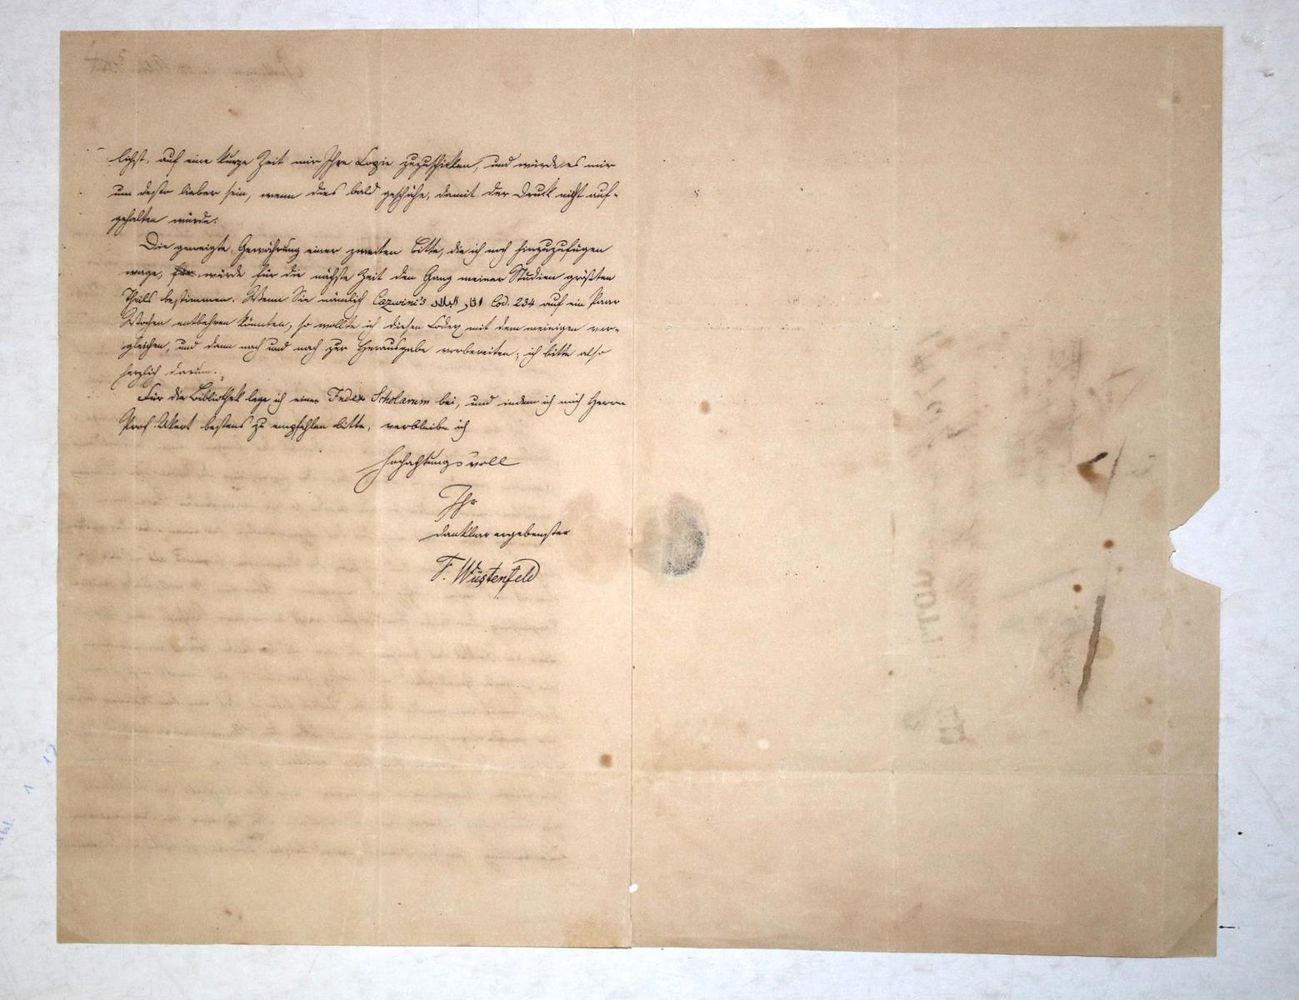 lichst, auf eine kurze Zeit mir Ihre Copie zuzuschicken, und würde es mir
um desto lieber sein, wenn dies bald geschähe, damit der Druck nicht auf-
gehalten würde.
Die geneigte Gewährung einer zweiten Bitte, die ich noch hinzuzufügen
wage, würde für die nächste Zeit den Gang meiner Studien größten
Theils bestimmen. Wenn Sie nämlich Cazwini's اثار البلاد Cod. 234 auf ein Paar
Wochen entbehren könnten, so wollte ich diesen Codex mit dem meinigen ver-
gleichen, und dann nach und nach zur Herausgabe vorbereiten; ich bitte also
herzlich darum.
Für die Bibliothek lege ich einen Index Scholarum bei, und indem ich mich Herrn
Prof. Ukert bestens zu empfehlen bitte, verbleibe ich
hochachtungsvoll
Ihr
dankbar ergebenster
F. Wüstenfeld